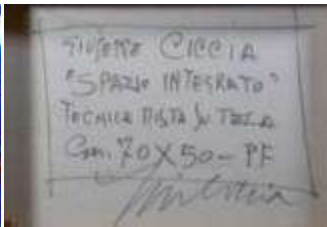 GIUSEPPE CICCIA
"SPAZIO INTEGRATO"
TECNICA MISTA SU TELA
Cm. 70X50-PF